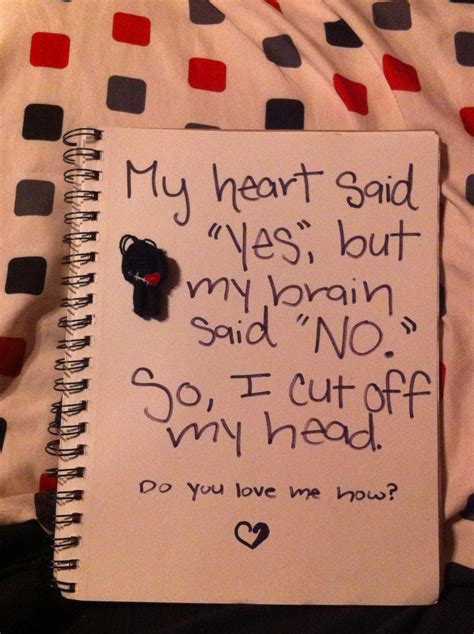 My heart said
"Yes", but
my brain
said "NO."
So, I cut off
my head.
Do you love me now?